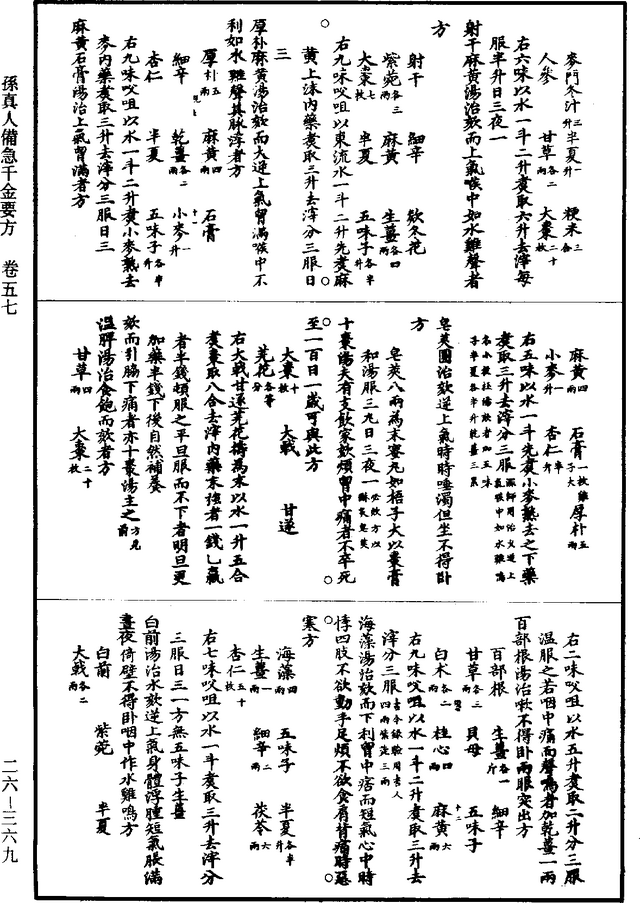 孫真人備急千金要方　卷五七
麥門冬汁三升　半夏一升　粳米三合
人參　甘草各二兩　大棗二十枚
右六味㕮咀以水一斗二升煑取六升去滓每
服半升日三夜一
射干麻黃湯治欬而上氣喉中如水雞聲者
方
射干　細辛　欵冬花
紫菀各三兩　麻黃　生薑各四兩
大棗七枚　半夏　五味子各半升
右九味㕮咀以東流水一斗二升先煑麻
黃上沫內藥煑取三升去滓分三服日
三
厚朴麻黃湯治欬而大逆上氣胷滿喉中不
利如水雞聲其脉浮者方
厚朴五兩　麻黃四兩　石膏
細辛　乾薑各二兩　小麥一升
杏仁　半夏　五味子各半升
右九味㕮咀以水一斗二升煑小麥熟去
麥內藥煑取三升去滓分三服日三
麻黃石膏湯治上氣胷滿者方
麻黃四兩　石膏一枚雞子大　厚朴五兩
小麥一升　杏仁半升
右五味以水一斗先煑小麥熟去之下藥
煑取三升去滓分三服深師用治久逆上氣喉中如水雞鳴名小投杯湯欬者加五味子半夏各半升乾薑三累
皂莢圓治欬逆上氣時時唾濁但坐不得卧
方
皂莢八兩爲末蜜丸如梧子大以棗膏
和湯服三丸日三夜一
十棗湯夫有支飲家欬煩胷中痛者不卒死
至一百日一歲可與此方
大棗十枚　大戟　甘遂
芫花各等分
右大戟甘遂芫花擣爲末以水一升五合
煑棗取八合去滓內藥末強者一錢匕羸
者半錢頓服之平旦服而不下者明旦更
加藥半錢下後自然補養
欬而引脇下痛者亦十棗湯主之方見前
溫脾湯治食飽而欬者方
甘草四兩　大棗二十枚
右二味㕮咀以水五升煑取二升分三服
溫服之若咽中痛而聲鳴者加乾薑一兩
百部根湯治嗽不得卧兩眼突出方
百部根　生薑各一斤　細辛
甘草各三兩　貝母　五味子
白术各二兩　桂心四兩　麻黃六兩
右九味㕮咀以水一斗二升煑取三升去
滓分三服古今錄驗用杏人四兩紫菀三兩
海藻湯治欬而下利胷中痞而短氣心中時
悸四肢不欲動手足煩不欲食肩背痛時惡
寒方
海藻四兩　五味子　半夏各半升
生薑一兩　細辛二兩　茯苓六兩
杏仁五十枚
右七味㕮咀以水一斗煑取三升去滓分
三服日三一方無五味子生薑
白前湯治水欬逆上氣身體浮腫短氣脹滿
晝夜倚壁不得卧咽中作水雞鳴方
白前　紫菀　半夏
大戟各二兩
二六—三六九